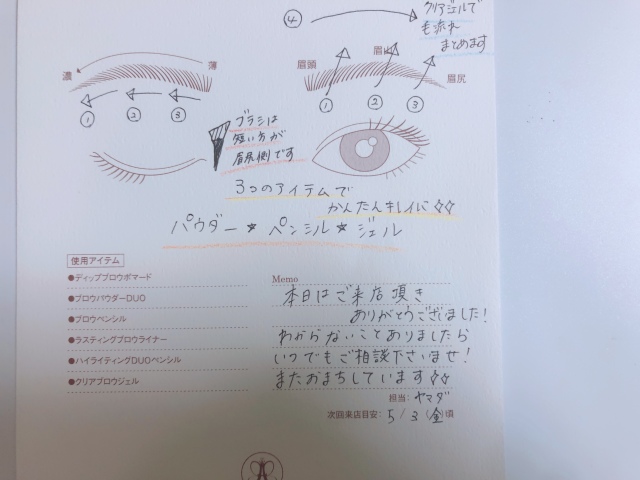 ④
クリアジェルで
毛流れ
まとめます
濃
薄
眉頭
眉山
眉尻
① ② ③
① ② ③
ブラシは
短い方が
眉尻側です
3つのアイテムで
かんたんキレイに
パウダー★ペンシル★ジェル
使用アイテム
●ディップブロウポマード
●ブロウパウダーDUO
●ブロウペンシル
●ラスティングブロウライナー
●ハイライティングDUOペンシル
●クリアブロウジェル
Memo
本日はご来店頂き
ありがとうございました!
わからないことありましたら
いつでもご相談下さいませ!
またおまちしています
担当:ヤマダ
次回来店目安:5/3(金)頃